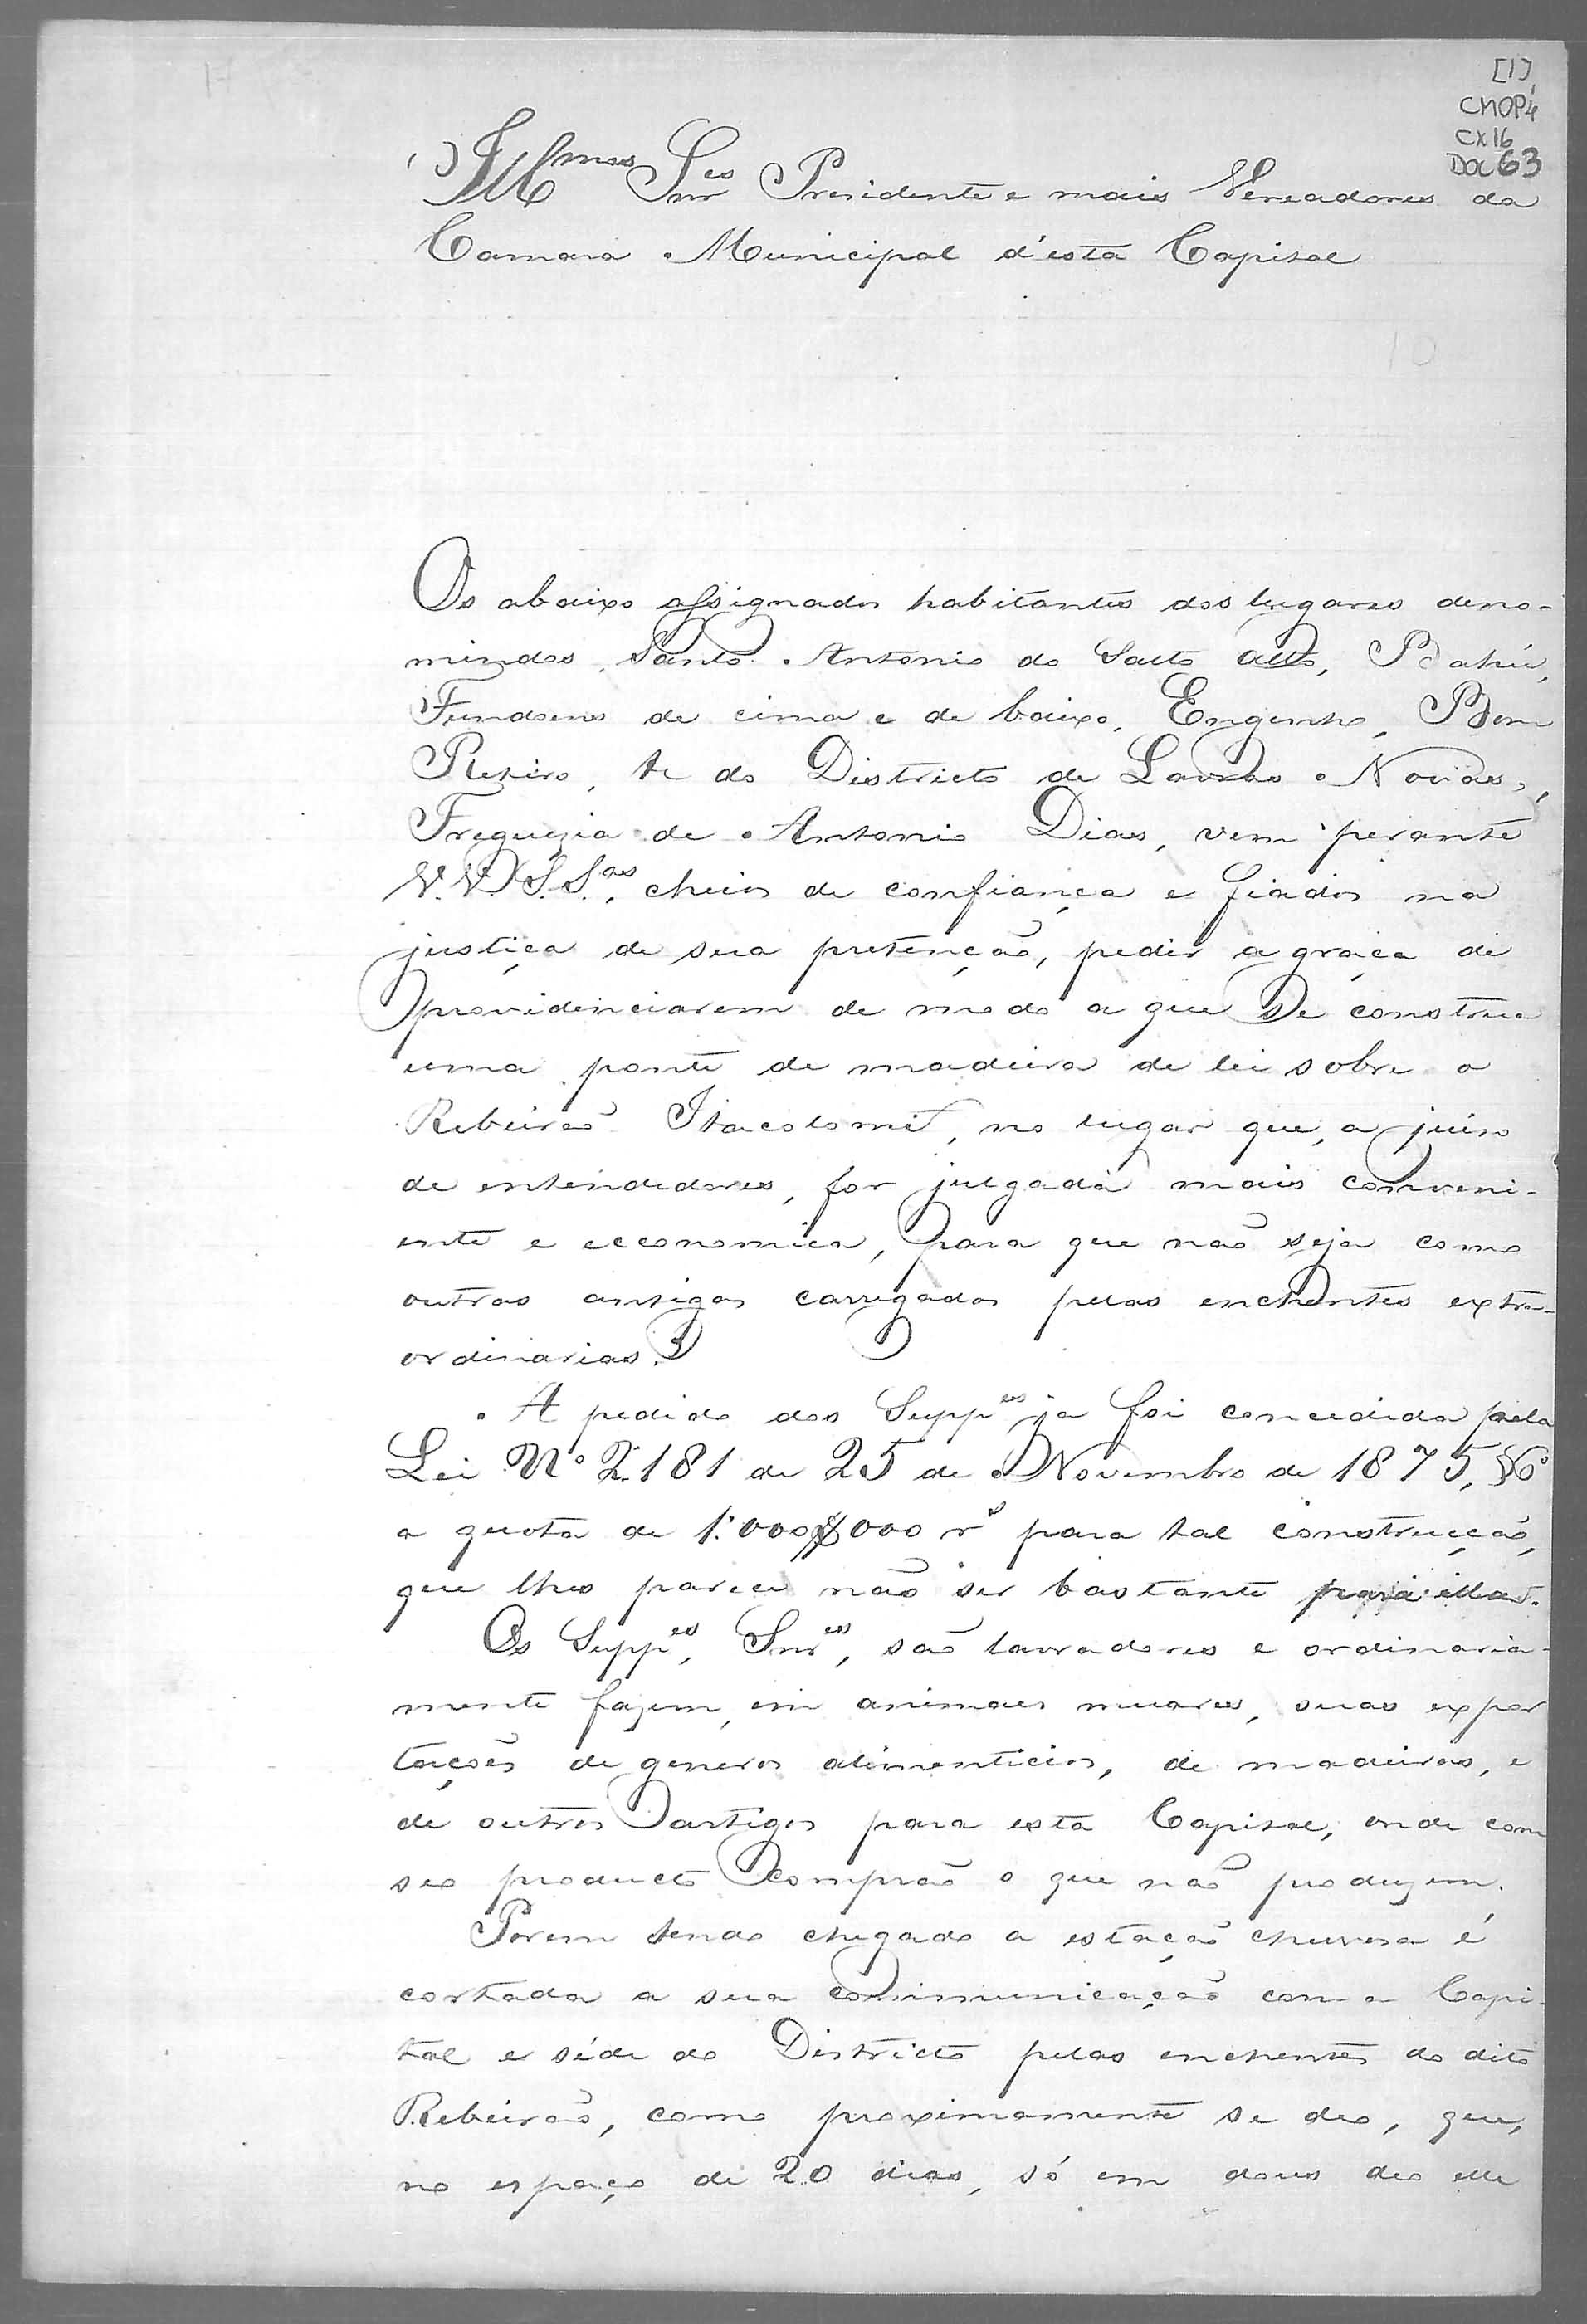 [1]
CMOP4
CX16
DOC63
Ill.mos Snr.es Presidente e mais Vereadores da
Camara Municipal d'esta Capital
Os abaixo assignados habitantes dos lugares deno-
mindos Santo Antonio do Salto alto, Bahú,
Fundoens de cima e de baixo, Engenho, Bom
Retiro, &c do Districto de Lavras Novas,
Freguezia de Antonio Dias, vem perante
V.V. S.S.as, cheios de confiança e fiados na
justiça de sua pretenção, pedir a graça de
providenciarem de modo a que se construa
uma ponte de madeira de lei sobre o
Ribeirão Itacolomi, no lugar que, a juiso
de entendedores, for julgada mais conveni-
ente e economica, para que não seja como
outras antigas carregadas pelas enchentes extra-
ordinarias.
A pedido dos Supp.es ja foi concedida pela
Lei Nº 2.181 de 25 de Novembro de 1875,
a quota de 1:000$000 rs para tal construcção,
que lhes parece não ser bastante para ella.
Os Supp.es, Snr.es, são lavradores e ordinaria-
mente fazem, em animaes muares, suas expor
tações de generos alimenticios, de madeiras, e
de outros artigos para esta Capital, onde com
seo producto comprão o que não produzem.
Porem sendo chegado a estação chuvosa é
cortada a sua communicação com a Capi-
tal e séde do Districto pelas enchentes do dito
Ribeirão, como proximamente se deo, que,
no espaço de 20 dias, só em dous deo elle